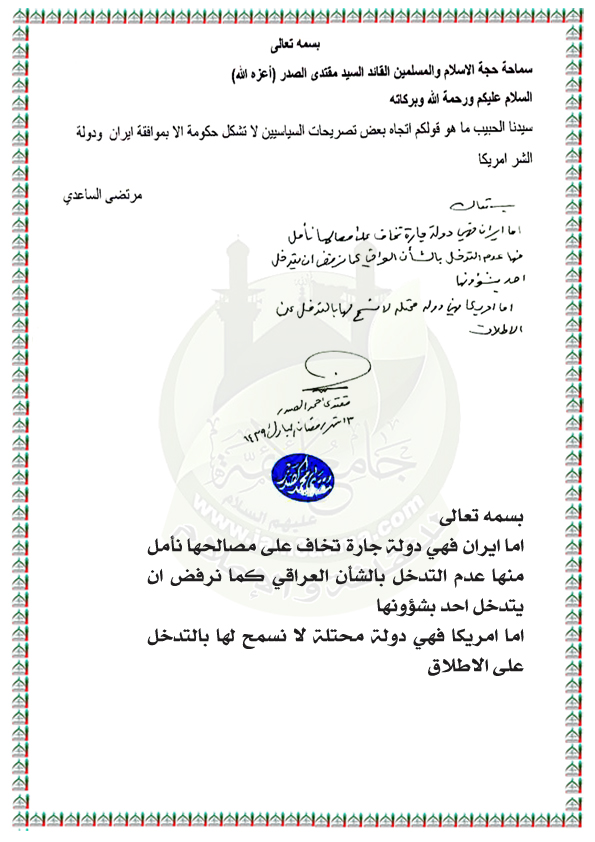 بسمه تعالى
سماحة حجة الاسلام والمسلمين القائد السيد مقتدى الصدر (أعزه الله)
السلام عليكم ورحمة الله وبركاته
سيدنا الحبيب ما هو قولكم اتجاه بعض تصريحات السياسيين لا تشكل حكومة الا بموافقة ايران ودولة
الشر امريكا
مرتضى الساعدي
بسمه تعالى
اما ايران فهي دولة جارة تخاف على مصالحها نأمل
منها عدم التدخل بالشأن العراقي كما نرفض ان يتدخل
احد بشؤونها
اما امريكا فهي دولة محتلة لا نسمح لها بالتدخل على
الاطلاق
مقتدى الصدر
١٣ شهر رمضان المبارك ١٤٣٩
جامع الأئمة
عليهم السلام
بسمه تعالى
اما ايران فهي دولة جارة تخاف على مصالحها نأمل
منها عدم التدخل بالشأن العراقي كما نرفض ان
يتدخل احد بشؤونها
اما امريكا فهي دولة محتلة لا نسمح لها بالتدخل
على الاطلاق